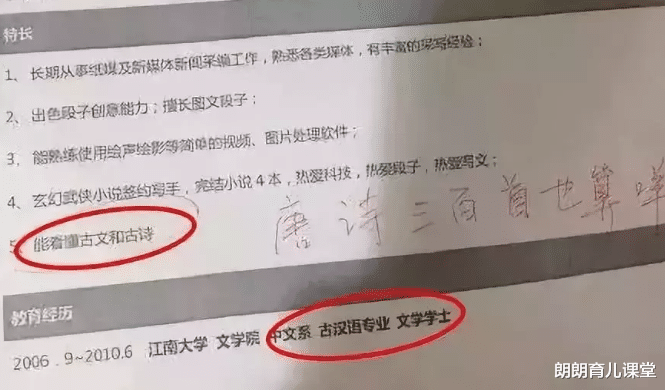 特长
1、长期从事纸媒及新媒体新闻采编工作，熟悉各类媒体，有丰富的采写经验；
2、出色段子创意能力；擅长图文段子；
3、能熟练使用绘声绘影等简单的视频、图片处理软件；
4、玄幻武侠小说签约写手，完结小说4本，热爱科技，热爱段子，热爱写文；
唐诗三百首也算
5、能看懂古文和古诗
教育经历
2006.9~2010.6 江南大学 文学院 中文系 古汉语专业 文学学士
朗朗育儿课堂